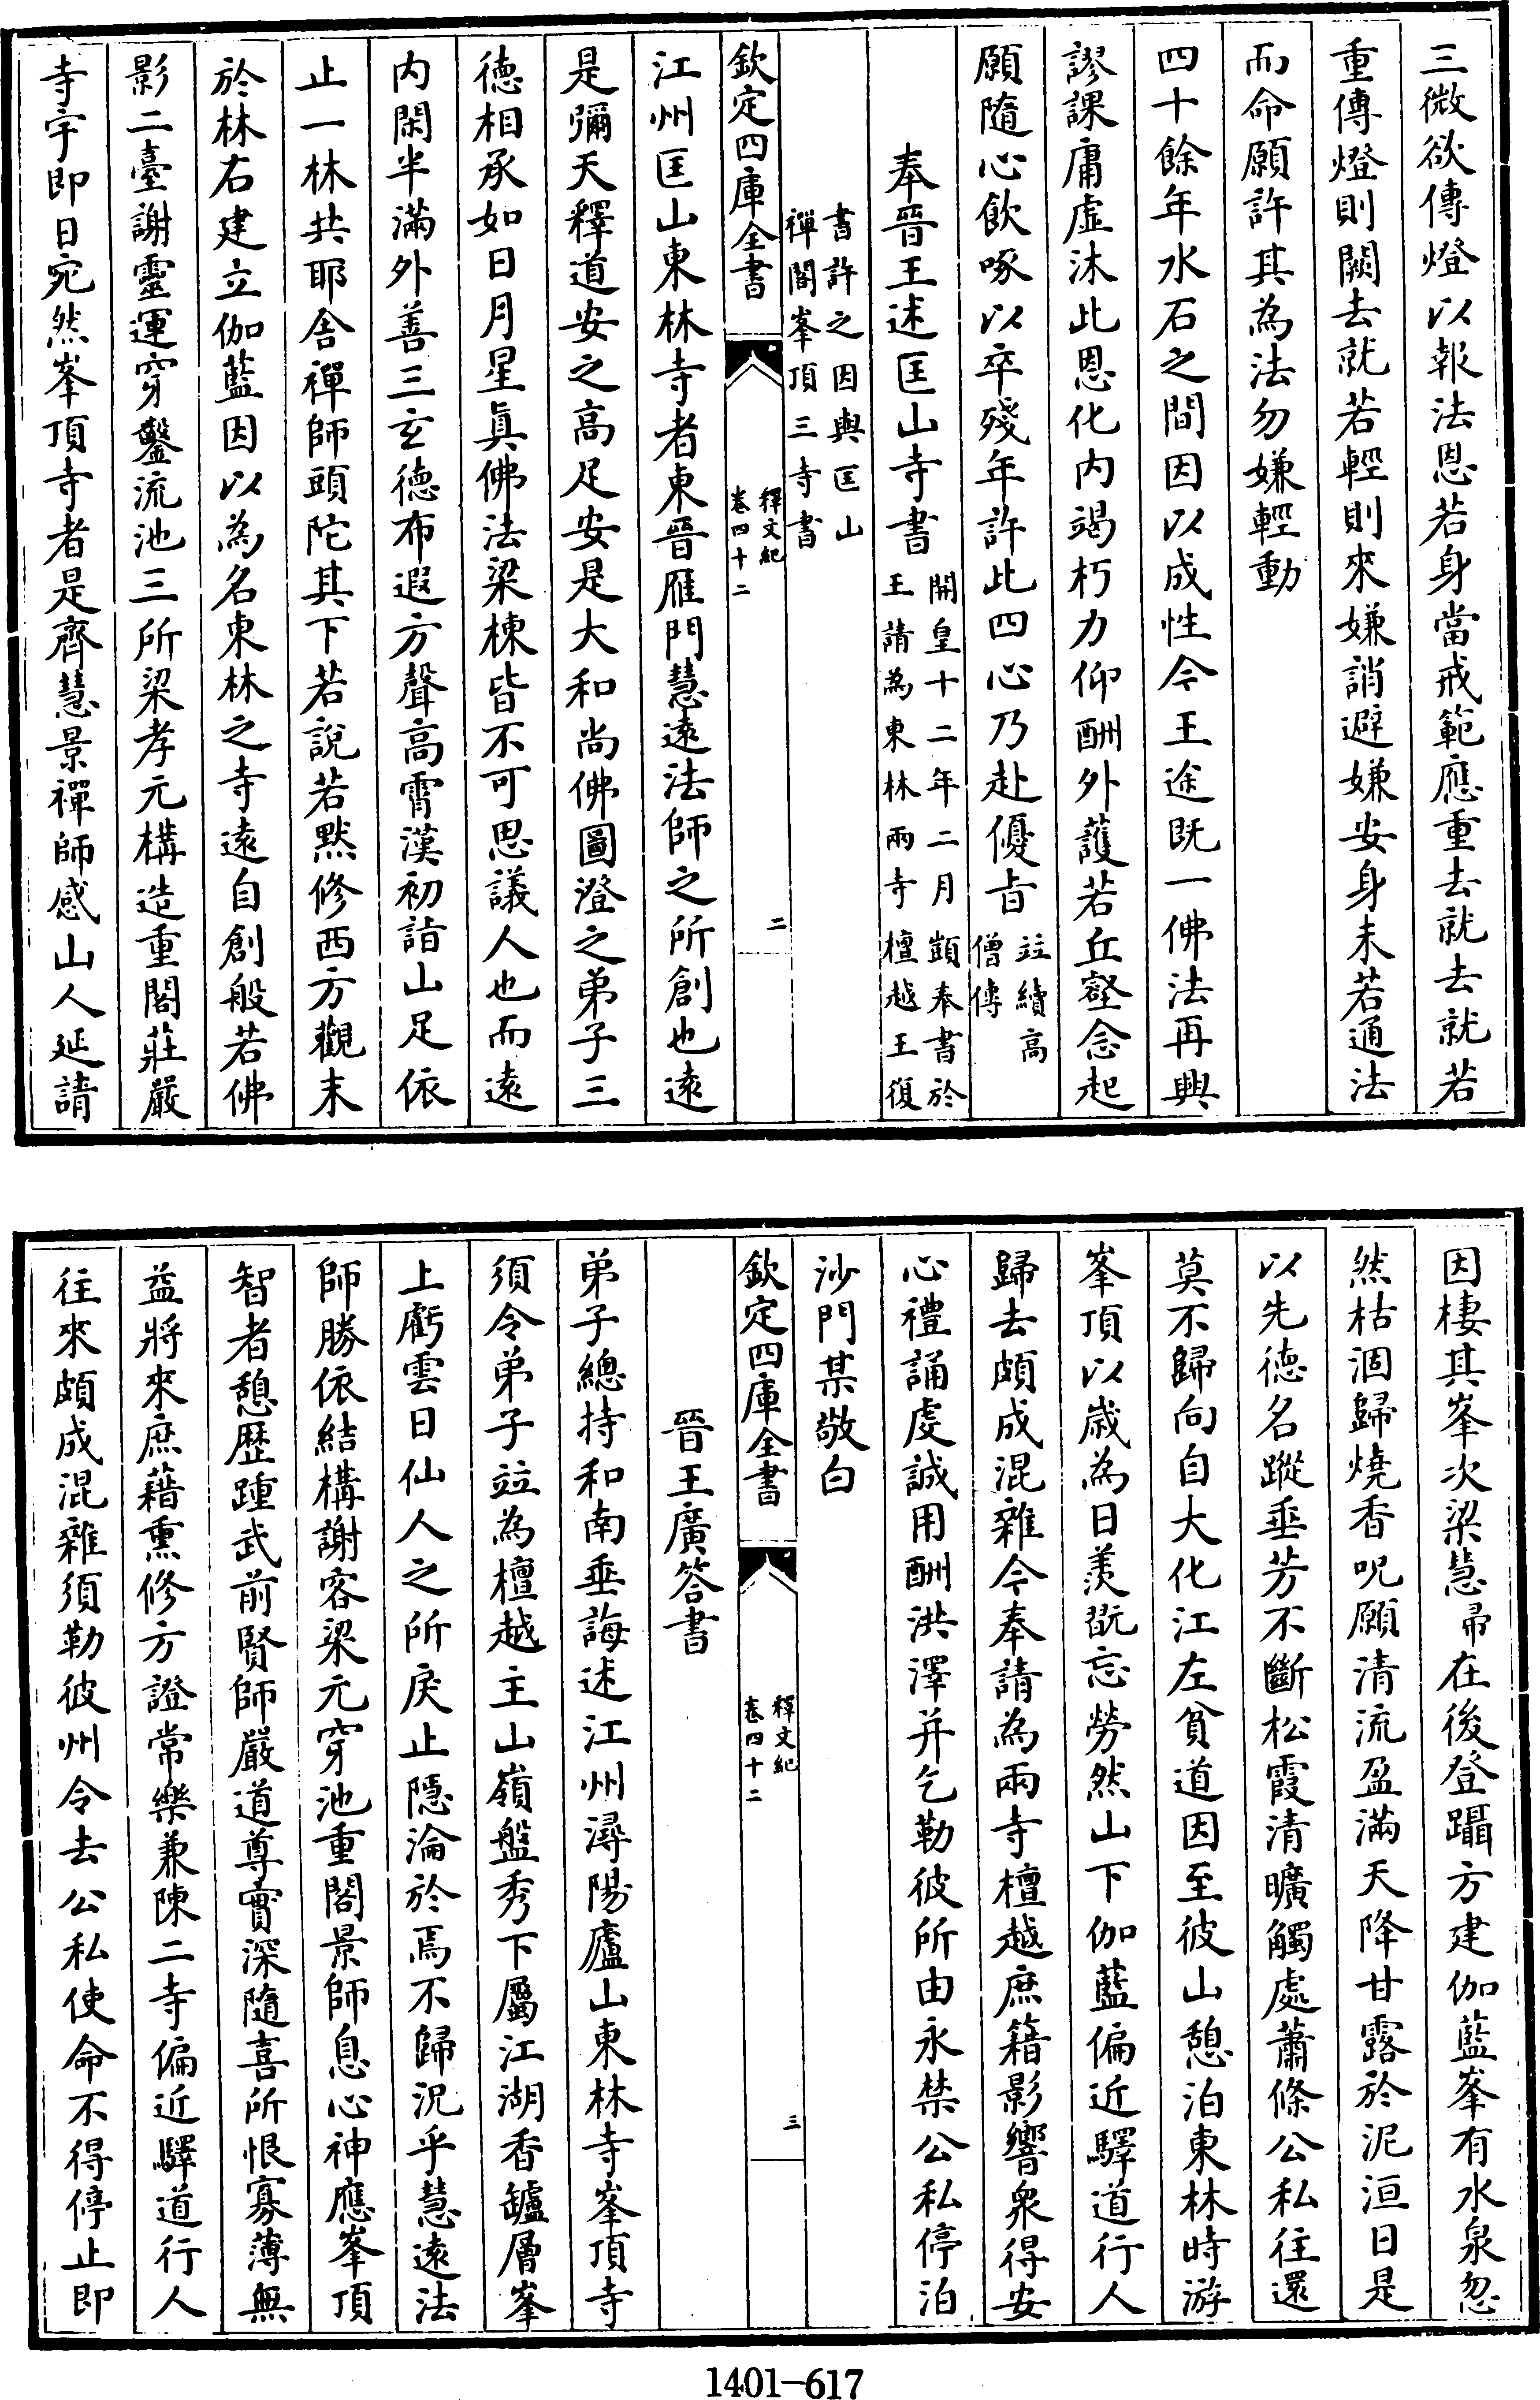 三微欲傳燈以報法恩若身當戒範應重去就去就若
重傳燈則闕去就若輕則來嫌誚避嫌安身未若通法
而命願許其為法勿嫌輕動
四十餘年水石之間因以成性今王途既一佛法再興
謬課庸虛沐此恩化内竭朽力仰酬外護若丘壑念起
願隨心飲啄以卒殘年許此四心乃赴優旨
竝續高
僧傳
奉晉王述匡山寺書
開皇十二年二月顗奉書於
王請為東林兩寺檀越王復
書許之因與匡山
禪閣峯頂三寺書
欽定四庫全書
釋文紀
卷四十二
二
江州匡山東林寺者東晉雁門慧遠法師之所創也遠
是彌天釋道安之高足安是大和尚佛圖澄之弟子三
德相承如日月星真佛法梁棟皆不可思議人也而遠
内閑半滿外善三玄德布遐方聲高霄漢初詣山足依
止一林共耶舍禪師頭陀其下若說若默修西方觀末
於林右建立伽藍因以為名東林之寺遠自創般若佛
影二臺謝靈運穿鑿流池三所梁孝元構造重閣莊嚴
寺宇即日宛然峯頂寺者是齊慧景禪師感山人延請
因棲其峯次梁慧帚在後登躡方建伽藍峯有水泉忽
然枯涸歸燒香呪願清流盈滿天降甘露於泥洹日是
以先德名蹤垂芳不斷松霞清曠觸處蕭條公私往還
莫不歸向自大化江左貧道因至彼山憩泊東林時游
峯頂以歲為日羨翫忘勞然山下伽藍偏近驛道行人
歸去頗成混雜今奉請為兩寺檀越庶籍影響衆得安
心禮誦虔誠用酬洪澤并乞勒彼所由永禁公私停泊
沙門某敬白
欽定四庫全書
釋文紀
卷四十二
三
晉王廣答書
弟子總持和南垂誨述江州潯陽廬山東林寺峯頂寺
須令弟子竝為檀越主山嶺盤秀下屬江湖香鑪層峯
上虧雲日仙人之所戾止隱淪於焉不歸況乎慧遠法
師勝依結構謝客梁元穿池重閣景師息心神應峯頂
智者憩歷踵武前賢師嚴道尊實深隨喜所恨寡薄無
益將來庶藉熏修方證常樂兼陳二寺偏近驛道行人
往來頗成混雜須勒彼州令去公私使命不得停止即
1401-617